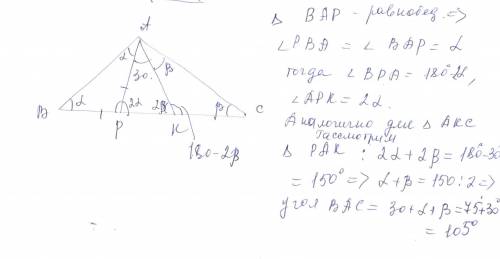 A
α
30.
β
B
α
2α
2β
β
C
P
K
180-2β
Δ BAP - равнобед. =>
∠PBA = ∠BAP = α
тогда ∠BPA = 180°-2α,
∠APK = 2α.
Аналогично для Δ AKC
Рассмотрим
Δ PAK : 2α + 2β = 180°-30°
= 150° => α+β = 150:2 =>
угол BAC = 30+α+β = 75°+30°
= 105°